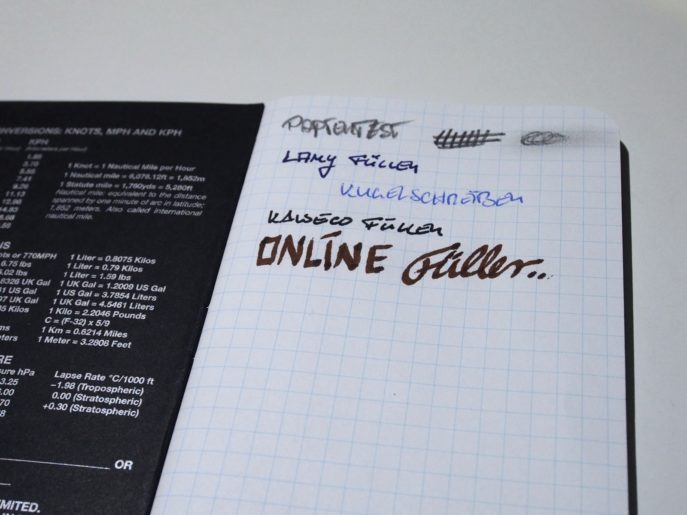 NVERSIONS: KNOTS, MPH AND KPH
KPH
1 Knot = 1 Nautical Mile per Hour
1 Nautical mile = 6,076.12ft = 1,852m
1 Statute mile = 1,760yds = 5,280ft
Nautical mile: equivalent to the distance
spanned by one minute of arc in latitude;
1,852 meters. Also called international
nautical mile.
NS
ots or 770MPH
6.75 lbs
6.02 lbs
.8328 UK Gal
1 Liter = 0.8075 Kilos
1 Liter = 0.79 Kilos
1 Liter = 1.59 lbs
1 UK Gal = 1.2009 US Gal
1 US Gal = 3.7854 Liters
1 UK Gal = 4.5461 Liters
1 Kilo = 2.2046 Pounds
C = (F-32) x 5/9
1 Km = 0.6214 Miles
1 Meter = 3.2808 Feet
RE
sure hPa
Lapse Rate °C/1000 ft
−1.98 (Tropospheric)
0.00 (Stratospheric)
+0.30 (Stratospheric)
OR
IMITED.
LAMY FÜLLER
KUGELSCHREIBER
KAWECO FÜLLER
ONLINE Füller...